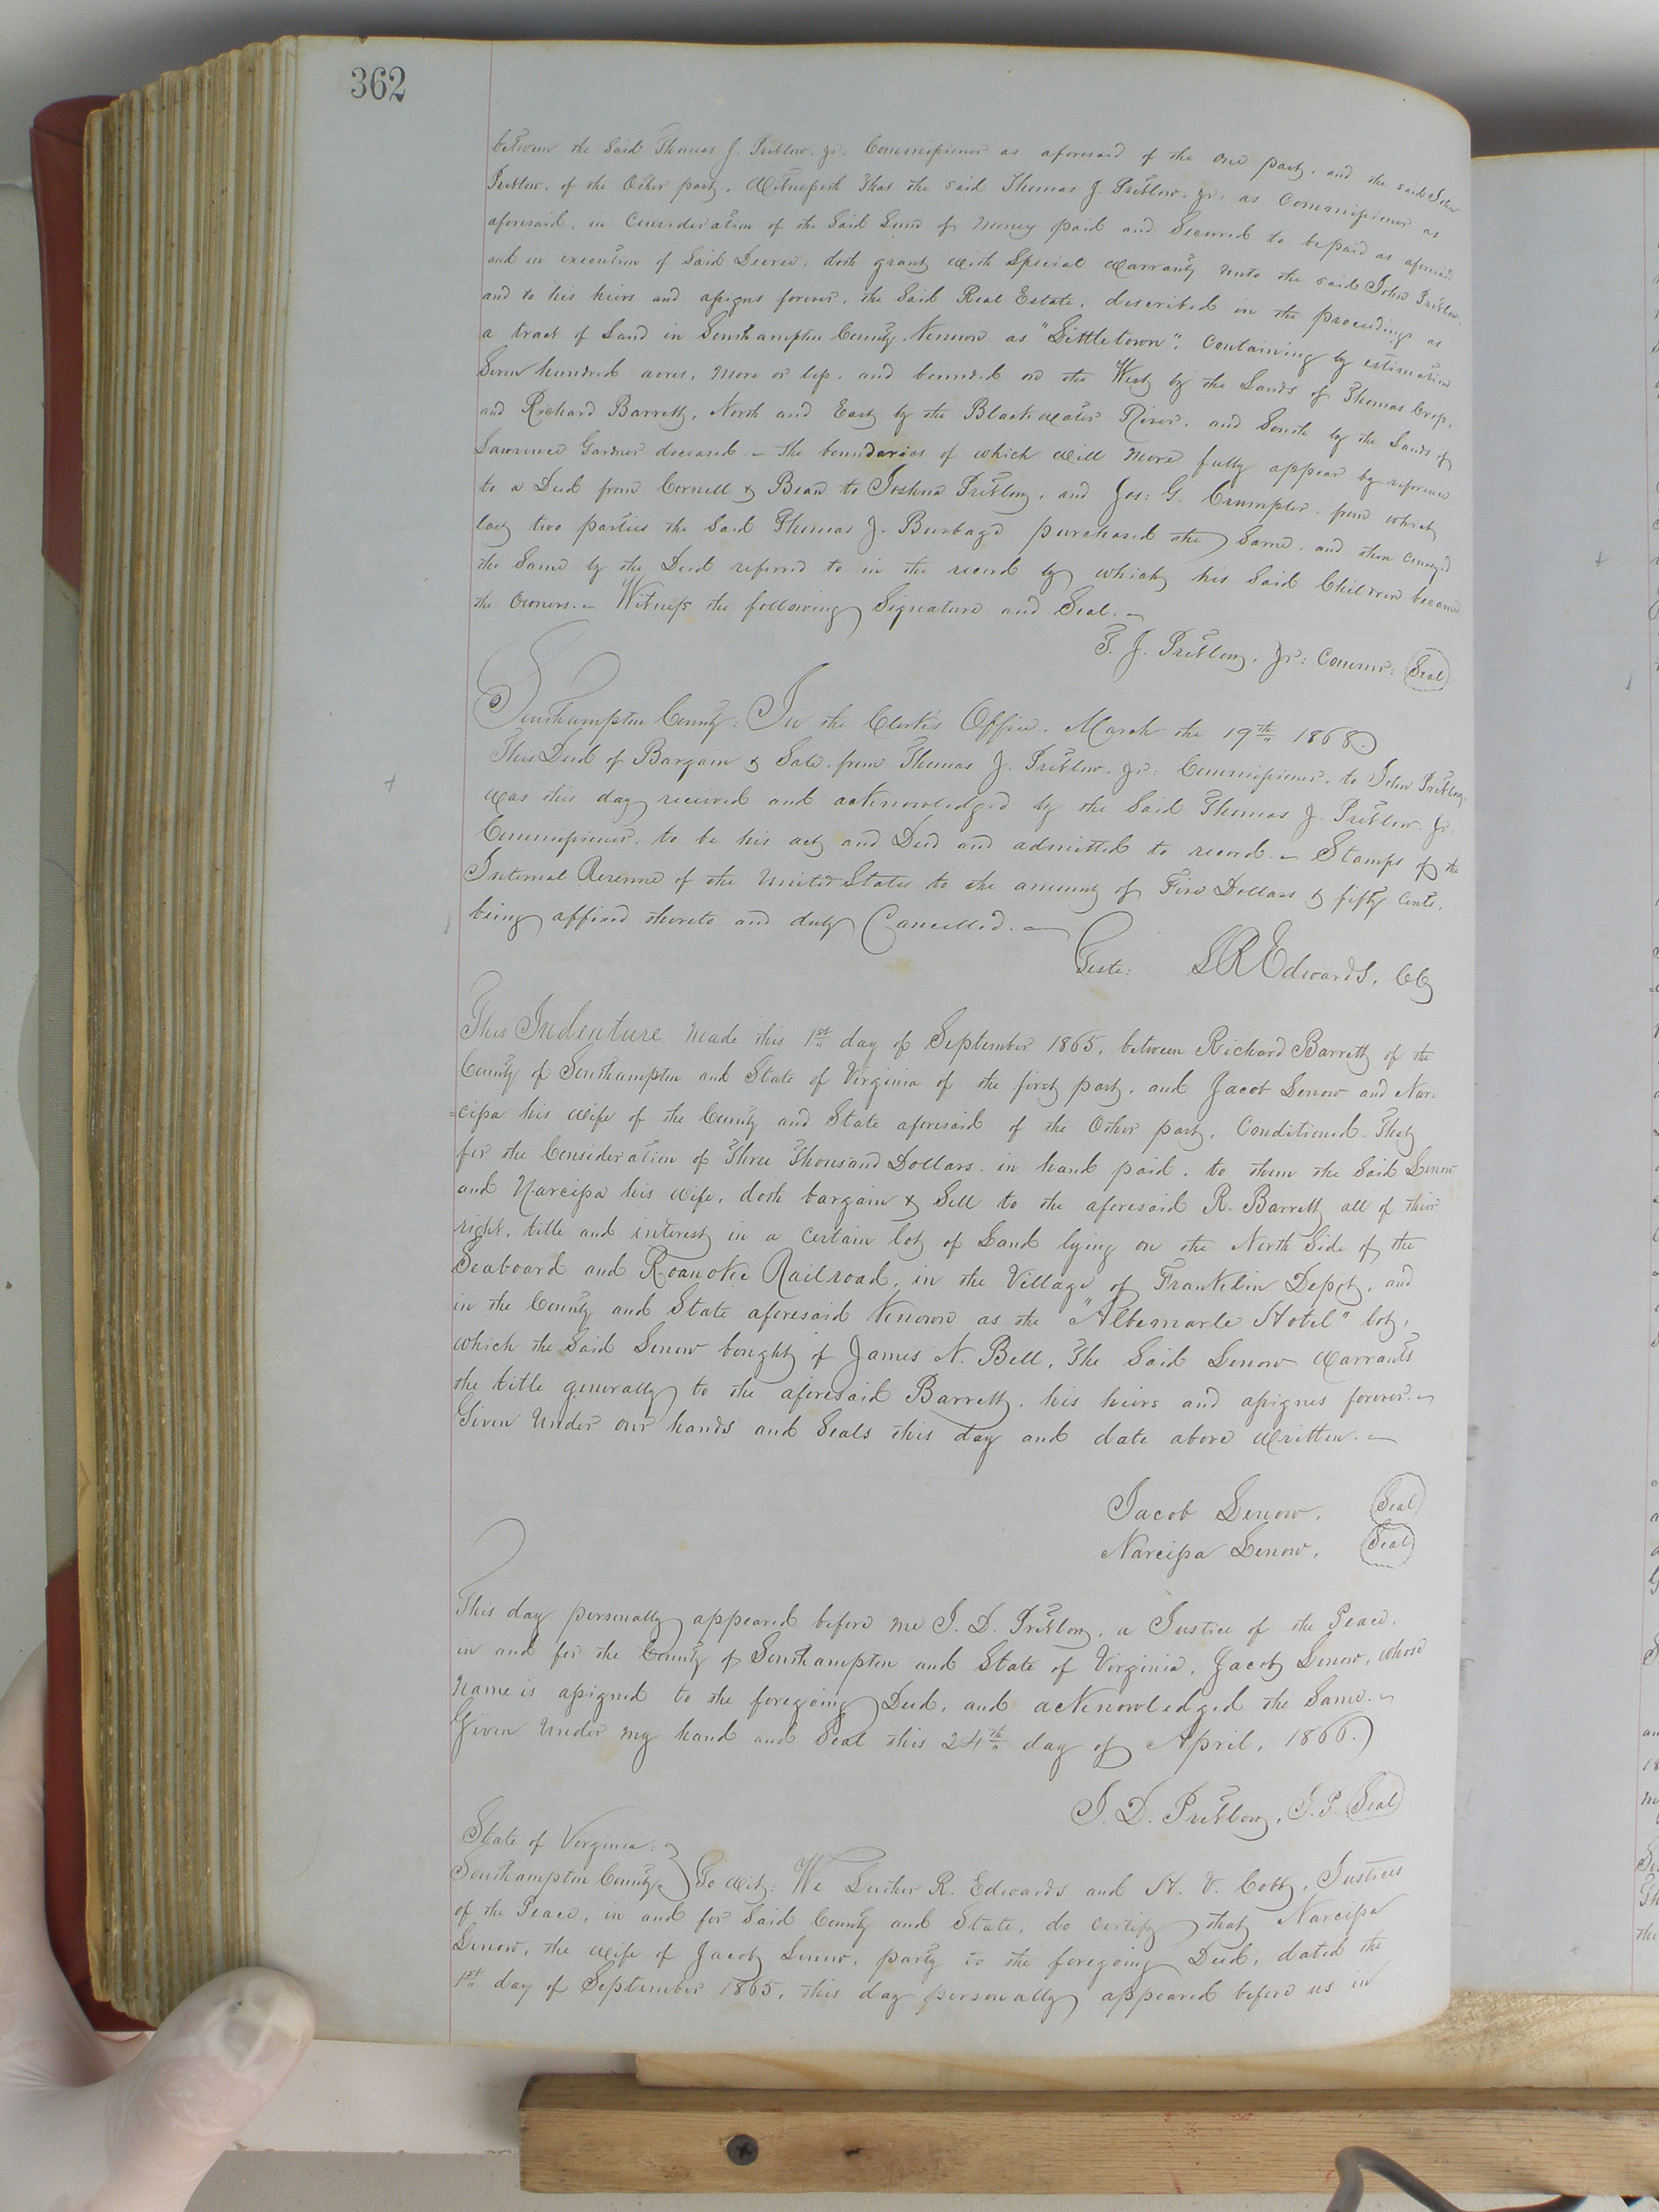 362
between the Said Thomas J. Pretlow. Jr: Commissioner as aforesaid of the one part, and the said John
Pretlow, of the Other part, Witnesseth That the said Thomas J. Pretlow, Jr: as Commissioner as
aforesaid, in Consideration of the Said Sum of Money paid and Secured to be paid as aforesaid
and in execution of Said Decree, doth grant With Special Warranty unto the said John Pretlow,
and to his heirs and assigns forever, the Said Real Estate, described in the proceedings as
a tract of Land in Southampton County, Known as "Littletown", Containing by estimation
Seven hundred acres, More or less, and bounded on the West by the Lands of Thomas Cross,
and Richard Barrett, North and East by the Blackwater River, and South by the Lands of
Lawrence Gardner deceased - The boundaries of which Will More fully appear by reference
to a Deed from Cornell & Bean to Joshua Pretlow, and Jos: G. Crumpler. from which
last two parties the Said Thomas J. Burbage purchased the Same, and then conveyed
the Same by the Deed referred to in the record by which his Said Children became
the Owners. - Witness the following Signature and Seal. -
T. J. Pretlow, Jr: Commr: (Seal)
Southampton County: In the Clerk's Office, March the 19th 1868
This Deed of Bargain & Sale. from Thomas J. Pretlow. Jr: Commissioner, to John Pretlow,
Was this day received and acknowledged by the Said Thomas J. Pretlow. Jr.
Commissioner, to be his act and Deed and admitted to record. - Stamps of the
Internal Revenue of the United States to the amount of Five Dollars & fifty Cents,
being affixed thereto and duly Cancelled. -
Teste: L R Edwards, CC
This Indenture Made this 1st day of September 1865, between Richard Barrett of the
County of Southampton and State of Virginia of the first part, and Jacob Lenow and Nar-
=cissa his Wife of the County and State aforesaid of the Other part, Conditioned. That
for the Consideration of Three Thousand Dollars. in hand paid, to them the Said Lenow
and Narcissa his Wife, doth bargain & Sell to the aforesaid R. Barrett all of their
right, title and interest in a Certain lot of Land lying on the North Side of the
Seaboard and Roanoke Railroad, in the Village of Franklin Depot, and
in the County and State aforesaid Known as the "Albemarle Hotel" lot,
which the Said Lenow bought of James N. Bell, The Said Lenow Warrants
the title generally to the aforesaid Barrett, his heirs and assigns forever. -
Given Under our hands and Seals this day and date above Written. -
Jacob Lenow, (Seal)
Narcissa Lenow, (Seal)
This day personally appeared before me J. D. Pretlow, a Justice of the Peace,
in and for the County of Southampton and State of Virginia, Jacob Lenow, whose
Name is assigned to the foregoing Deed, and acknowledged the Same. -
Given Under my hand and Seal this 24th day of April, 1866.
J. D. Pretlow, J. P. (Seal)
State of Virginia:
Southampton County To Wit: We Luther R. Edwards and H. V. Cobb, Justices
of the Peace, in and for Said County and State, do Certify that Narcissa
Lenow, the Wife of Jacob Lenow, party to the foregoing Deed, dated the
1st day of September 1865, this day personally appeared before us in